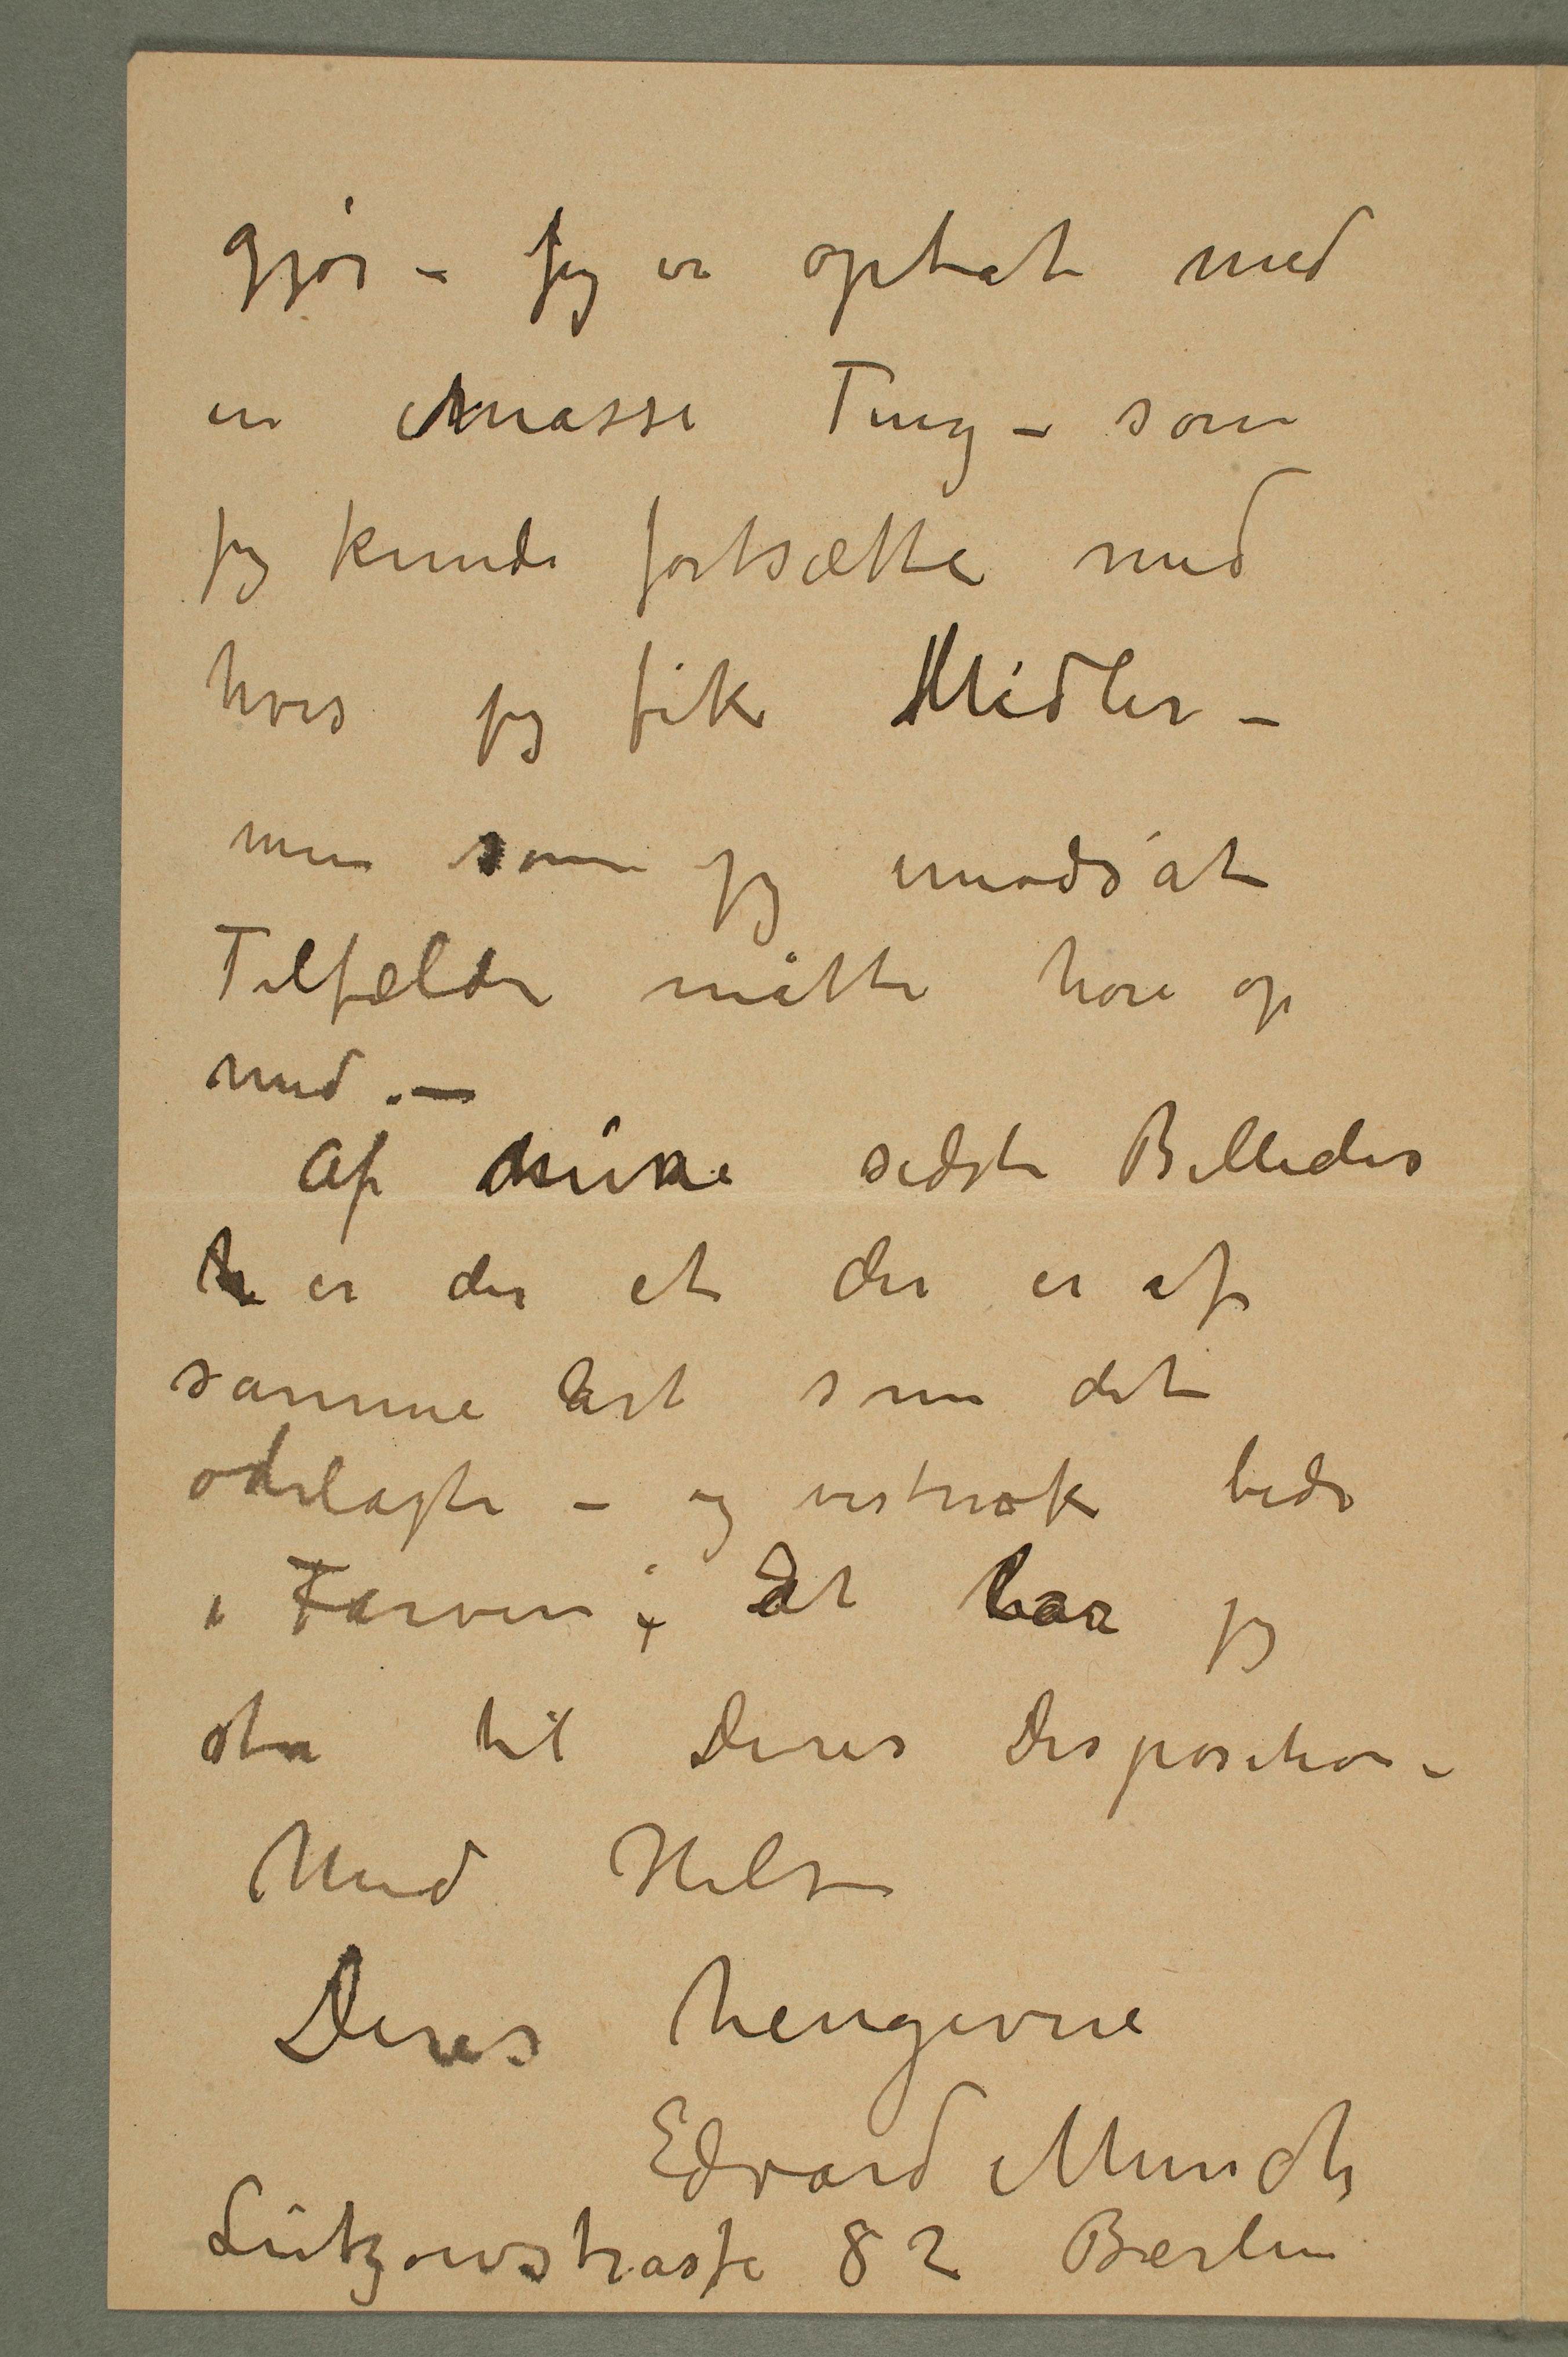 gjør – Jeg er optat med
en Masse Ting – som
jeg kunde fortsætte med
hvis jeg fik Midler –
men som jeg imodsat
Tilfælde måtte høre op
med. –
Af mine sidste Billeder
er der et der er af
samme Art som det
ødelagte – og vistnok bedre
i Farven; det har jeg
til Deres Disposition –
Med Hilsen
Deres hengivne
Edvard Munch
Lützowstrasse 82 Berlin